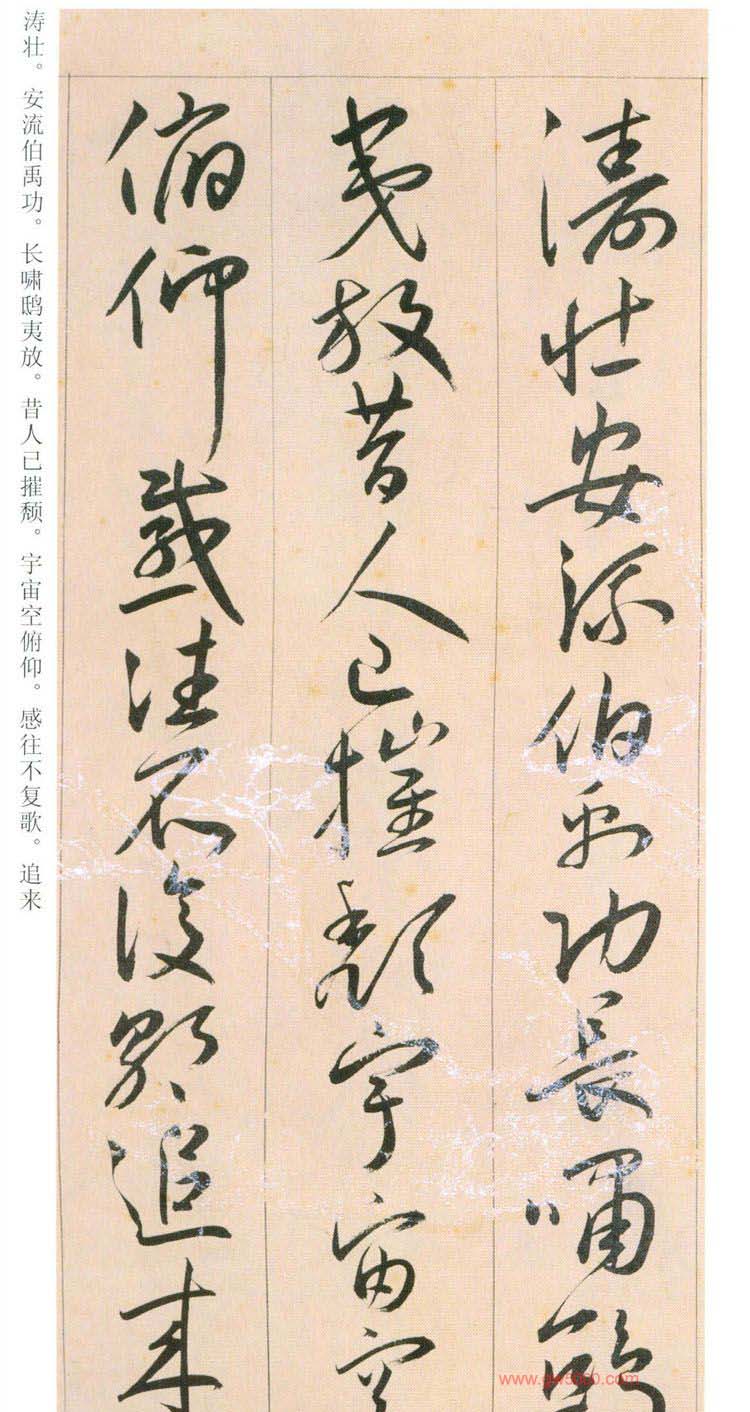 濤壮安流伯禹功長嘯鴟
夷放昔人已摧頹宇宙空
俯仰感往不復歌追来
涛壮。安流伯禹功。长啸鸱夷放。昔人已摧颓。宇宙空俯仰。感往不复歌。追来